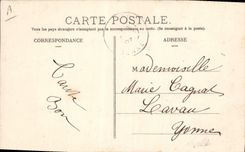 A
CARTE POSTALE.
Tous les pays étrangers n'acceptent pas la correspondance au recto. (Se renseigner à la poste).
CORRESPONDANCE
ADRESSE
Mademoiselle
Marie Cagnat
Lavau
Yonne
Bon